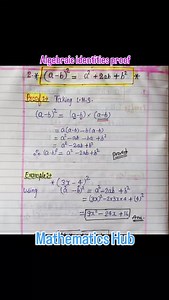 Algebraic identities proof
2.* (a-b)² = a² + 2ab + b²
Proof:- Taking L.H.S.
(a-b)² = (a-b) × (a-b)
= a(a-b) - b(a-b)
= a² - ab - ba + b²
= a² - 2ab + b²
So (a-b)² = a² - 2ab + b²
proved
Example:-
(3x - 4)²
using (a-b)² = a² - 2ab + b²
= (3x)² - 2×3x×4 + (4)²
= 9x² - 24x + 16 Ans
Mathematics Hub